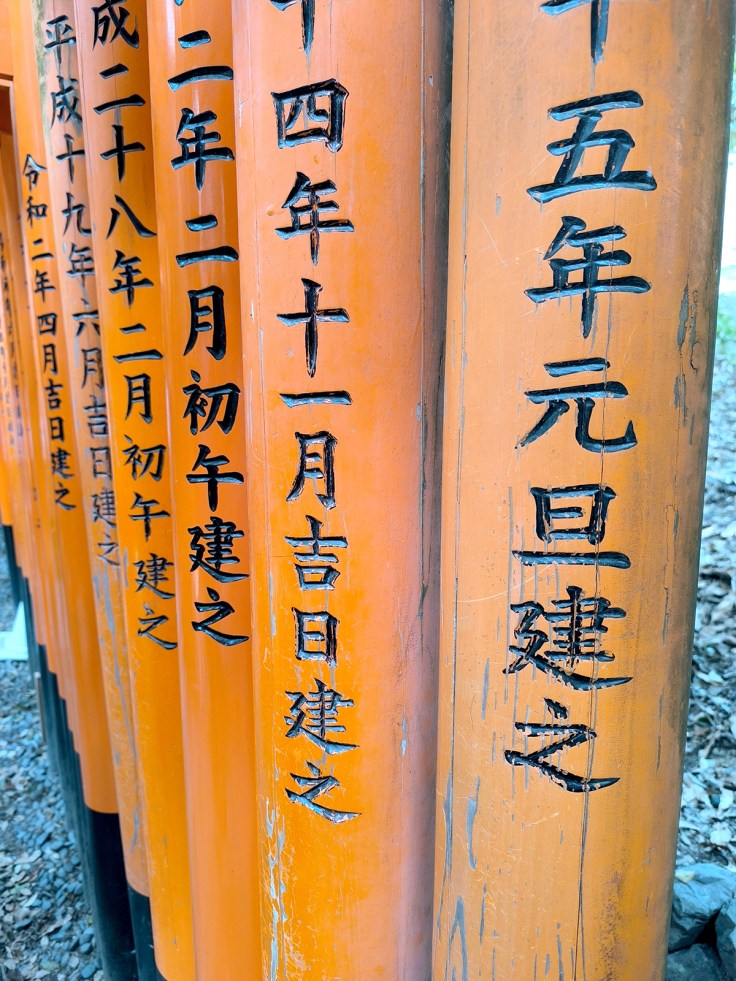 十五年元旦建之
十四年十一月吉日建之
二年二月初午建之
成二十八年二月初午建之
平成十九年六月吉日建之
令和二年四月吉日建之